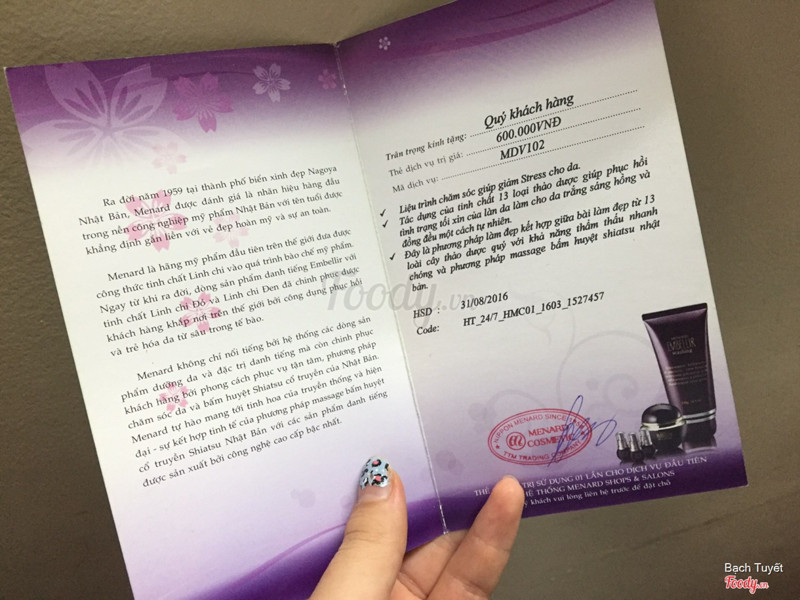 Ra đời năm 1959 tại thành phố biển xinh đẹp Nagoya
Nhật Bản, Menard được đánh giá là nhãn hiệu hàng đầu
trong nền công nghiệp mỹ phẩm Nhật Bản với tên tuổi được
khẳng định gắn liền với vẻ đẹp hoàn mỹ và sự an toàn.
Menard là hãng mỹ phẩm đầu tiên trên thế giới đưa được
công thức tinh chất Linh chi vào quá trình bào chế mỹ phẩm.
Ngay từ khi ra đời, dòng sản phẩm danh tiếng Embellir với
tinh chất Linh chi Đỏ và Linh chi Đen đã chinh phục được
khách hàng khắp nơi trên thế giới bởi công dụng phục hồi
và trẻ hóa da từ sâu trong tế bào.
Menard không chỉ nổi tiếng bởi hệ thống các dòng sản
phẩm dưỡng da và đặc trị danh tiếng mà còn chinh phục
khách hàng bởi phong cách phục vụ tận tâm, phương pháp
chăm sóc da và bấm huyệt Shiatsu cổ truyền của Nhật Bản.
Menard tự hào mang tới tinh hoa của truyền thống và hiện
đại - sự kết hợp tinh tế của phương pháp massage bấm huyệt
cổ truyền Shiatsu Nhật Bản với các sản phẩm danh tiếng
được sản xuất bởi công nghệ cao cấp bậc nhất.
Trân trọng kính tặng: Quý khách hàng
Thẻ dịch vụ trị giá: 600.000VNĐ
Mã dịch vụ: MDV102
✓ Liệu trình chăm sóc giúp giảm Stress cho da.
✓ Tác dụng của tinh chất 13 loại thảo dược giúp phục hồi
tình trạng tối xỉn của làn da làm cho da trắng sáng hồng và
đồng đều một cách tự nhiên.
✓ Đây là phương pháp làm đẹp kết hợp giữa bài làm đẹp từ 13
loài cây thảo dược quý với khả năng thẩm thấu nhanh
chóng và phương pháp massage bấm huyệt shiatsu nhật
bản.
HSD : 31/08/2016
Code: HT_24/7_HMC01_1603_1527457
EMBELLIR
NIPPON MENARD SINCE
MENARD
COSMETIC
TTM TRADING COMPANY
THẺ TRỊ SỬ DỤNG 01 LẦN CHO DỊCH VỤ ĐẦU TIÊN
HỆ THỐNG MENARD SHOPS & SALONS
khách vui lòng liên hệ trước để đặt chỗ
foody.vn
Bạch Tuyết
Foody.vn